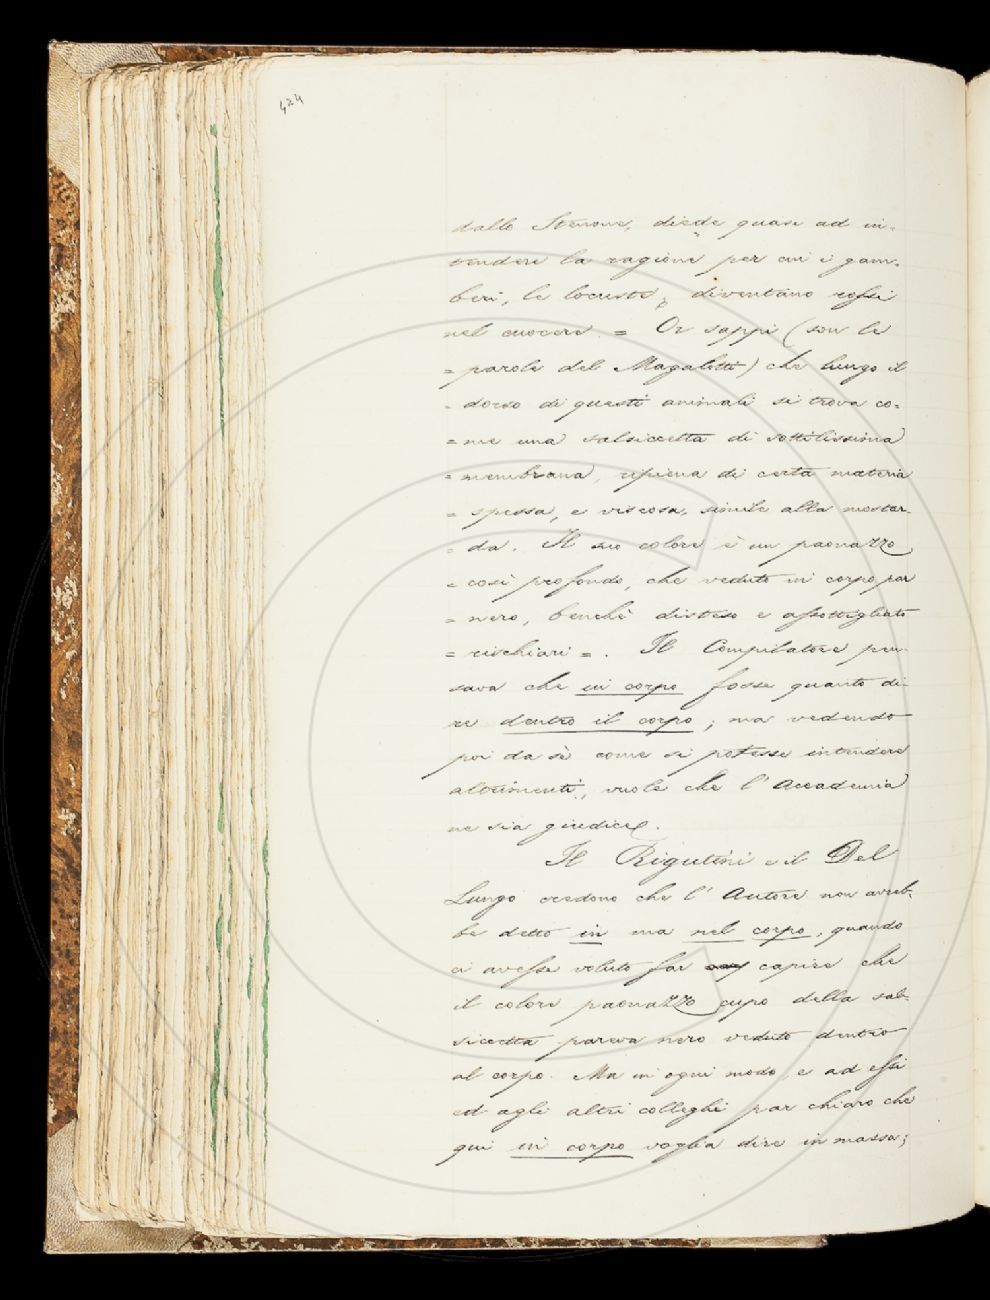 424
dallo Stenone, diede quasi ad in-
tendere la ragione per cui i gam-
beri, le locuste, diventano rossi
nel cuocere. = Or sappi (son le
= parole del Magalotti) che lungo il
= dorso di questi animali si trova co-
= me una salsiccetta di sottilissima
= membrana, ripiena di certa materia
= spessa, e viscosa, simile alla mostar-
= da. Il suo colore è un paonazzo
= così profondo, che veduto in corpo par
= nero, benchè disteso e assottigliato
= rischiari = . Il Compilatore pen-
sava che in corpo fosse quanto di-
re dentro il corpo; ma vedendo
poi da sè come si potesse intendere
altrimenti, vuole che l'Accademia
ne sia giudice.
Il Rigutini e il Del
Lungo credono che l'Autore non avreb-
be detto in ma nel corpo, quando
ci avesse voluto far capire che
il colore paonazzo cupo della sal-
siccetta pareva nero veduto dentro
al corpo. Ma in ogni modo, e ad essi
ed agli altri colleghi par chiaro che
qui in corpo voglia dire in massa;